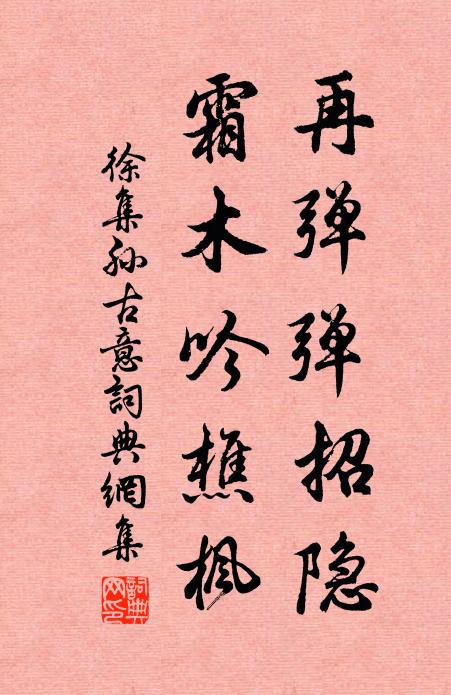 再弹弹招隐
霜木吟樵枫
徐集孙古意詞典網集
詞典网印